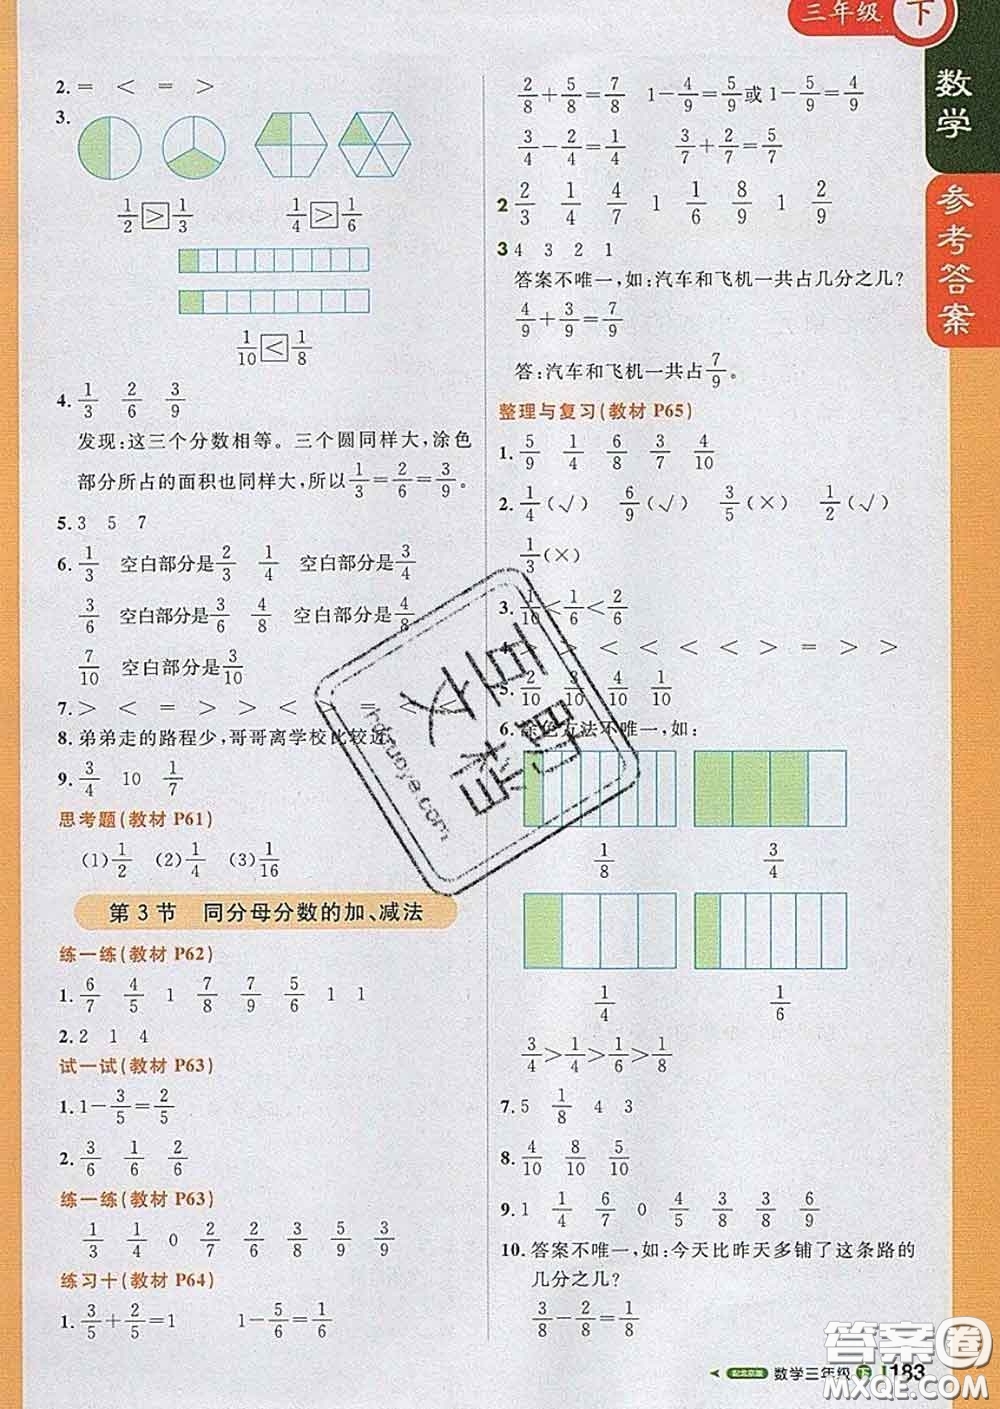 三年级 下
数学
参考答案
2. = < = >
3.
1/2 > 1/3 1/4 > 1/6
1/10 < 1/8
4. 1/3 2/6 3/9
发现:这三个分数相等。三个圆同样大,涂色
部分所占的面积也同样大,所以1/3=2/6=3/9。
5. 3 5 7
6. 1/3 空白部分是2/3 1/4 空白部分是3/4
3/6 空白部分是3/6 4/8 空白部分是4/8
7/10 空白部分是3/10
7. > < = > > < < <
8. 弟弟走的路程少,哥哥离学校比较近。
9. 3/4 10 1/7
思考题(教材 P61)
(1)1/2 (2)1/4 (3)1/16
第 3 节 同分母分数的加、减法
练一练(教材 P62)
1. 6/7 4/5 1 7/8 7/9 5/6 1 1
2. 2 1 4
试一试(教材 P63)
1. 1-3/5=2/5
2. 3/6 1/6 2/6
练一练(教材 P63)
1/3 1/4 0 2/7 2/8 3/6 5/9 3/9
练习十(教材 P64)
1. 3/5+2/5=1 1-5/6=1/6
2/8+5/8=7/8 1-4/9=5/9或1-5/9=4/9
3/4-2/4=1/4 3/7+2/7=5/7
2 2/3 1/4 4/7 1 1/6 8/9 1 2/9
3 4 3 2 1
答案不唯一,如:汽车和飞机一共占几分之几?
4/9+3/9=7/9
答:汽车和飞机一共占7/9。
整理与复习(教材 P65)
1. 5/9 1/4 6/8 3/7 4/10
2. 1/4(√) 6/9(√) 3/5(×) 1/2(√)
1/3(×)
3. 1/10<1/6<2/6
> < < < < = > >
5. 2/10 3/10 4/10 1/10
6. 涂色方法不唯一,如:
1/8 3/4
1/4 1/6
3/4>1/4>1/6>1/8
7. 5 1/8 4 3
8. 4/10 8/10 5/10
9. 1 1/4 6/7 0 4/5 3/8 3/8 6/9
10. 答案不唯一,如:今天比昨天多铺了这条路的
几分之几?
3/8-2/8=1/8
数学三年级 下 183
hdzuoye.com
答案圈
MXQE.COM